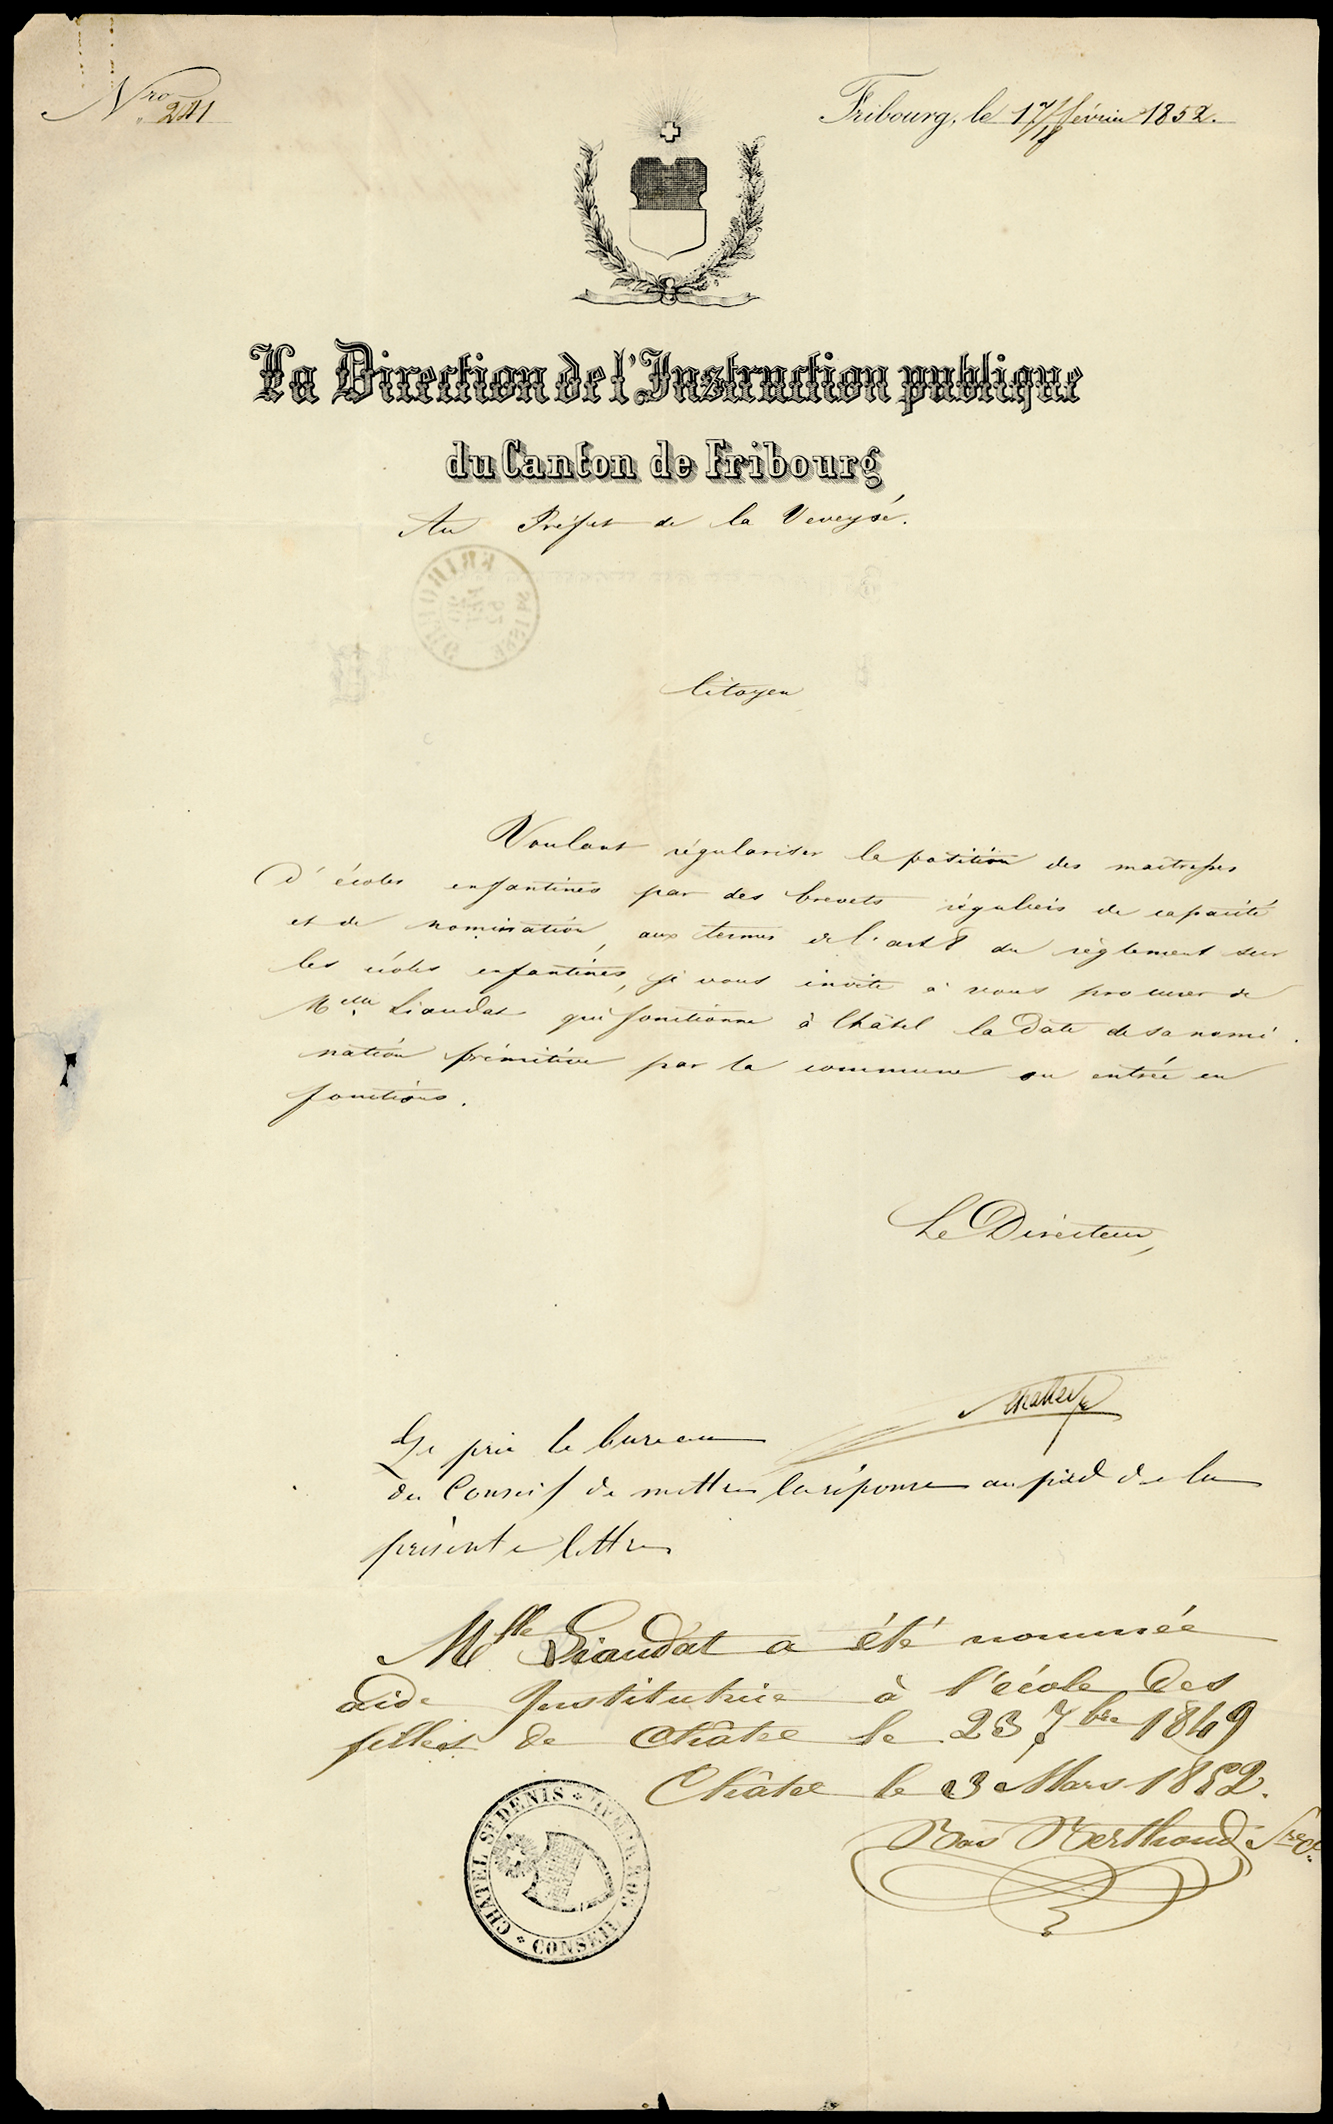 Nro 241
Fribourg, le 17/18 février 1852.
La Direction de l'Instruction publique
du Canton de Fribourg
Au Préfet de la Veveyse.
FRIBOURG SUISSE
Citoyen
Voulant régulariser la position des maîtresses
d'écoles enfantines par des brevets réguliers de capacité
et de nomination, aux termes de l'art 8 du règlement sur
les écoles enfantines, je vous invite à vous procurer de
Melle Liaudat qui fonctionne à Châtel la date de sa nomi
nation primitive par la commune ou entrée en
fonctions.
Le Directeur,
Je prie le bureau
du Conseil de mettre la réponse au pied de la
présente lettre
Mlle Liaudat a été nommée
aide Institutrice à l'école des
filles de Châtel le 23 7bre 1849
Châtel le 3 Mars 1852.
Berthoud
CHATEL ST DENIS * CONSEIL